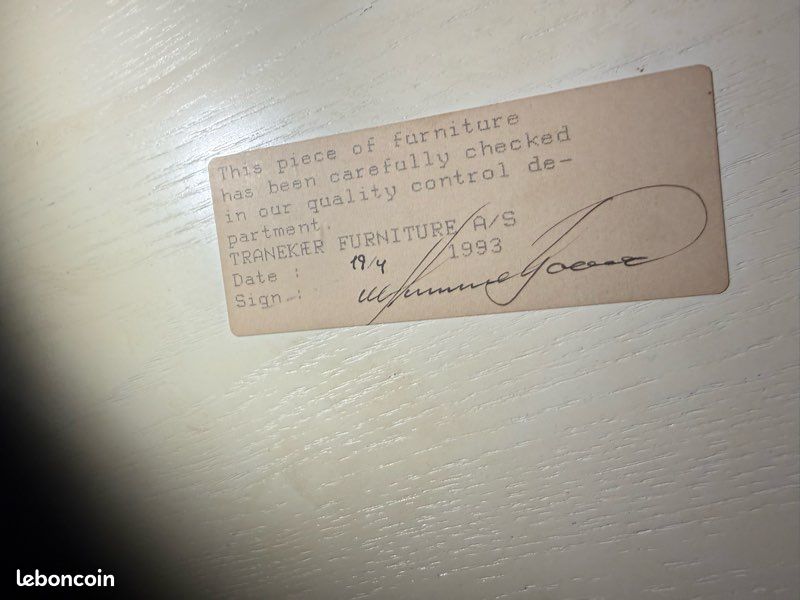 This piece of furniture
has been carefully checked
in our quality control de-
partment.
TRANEKÆR FURNITURE A/S
Date : 19/4 1993
Sign.:
leboncoin